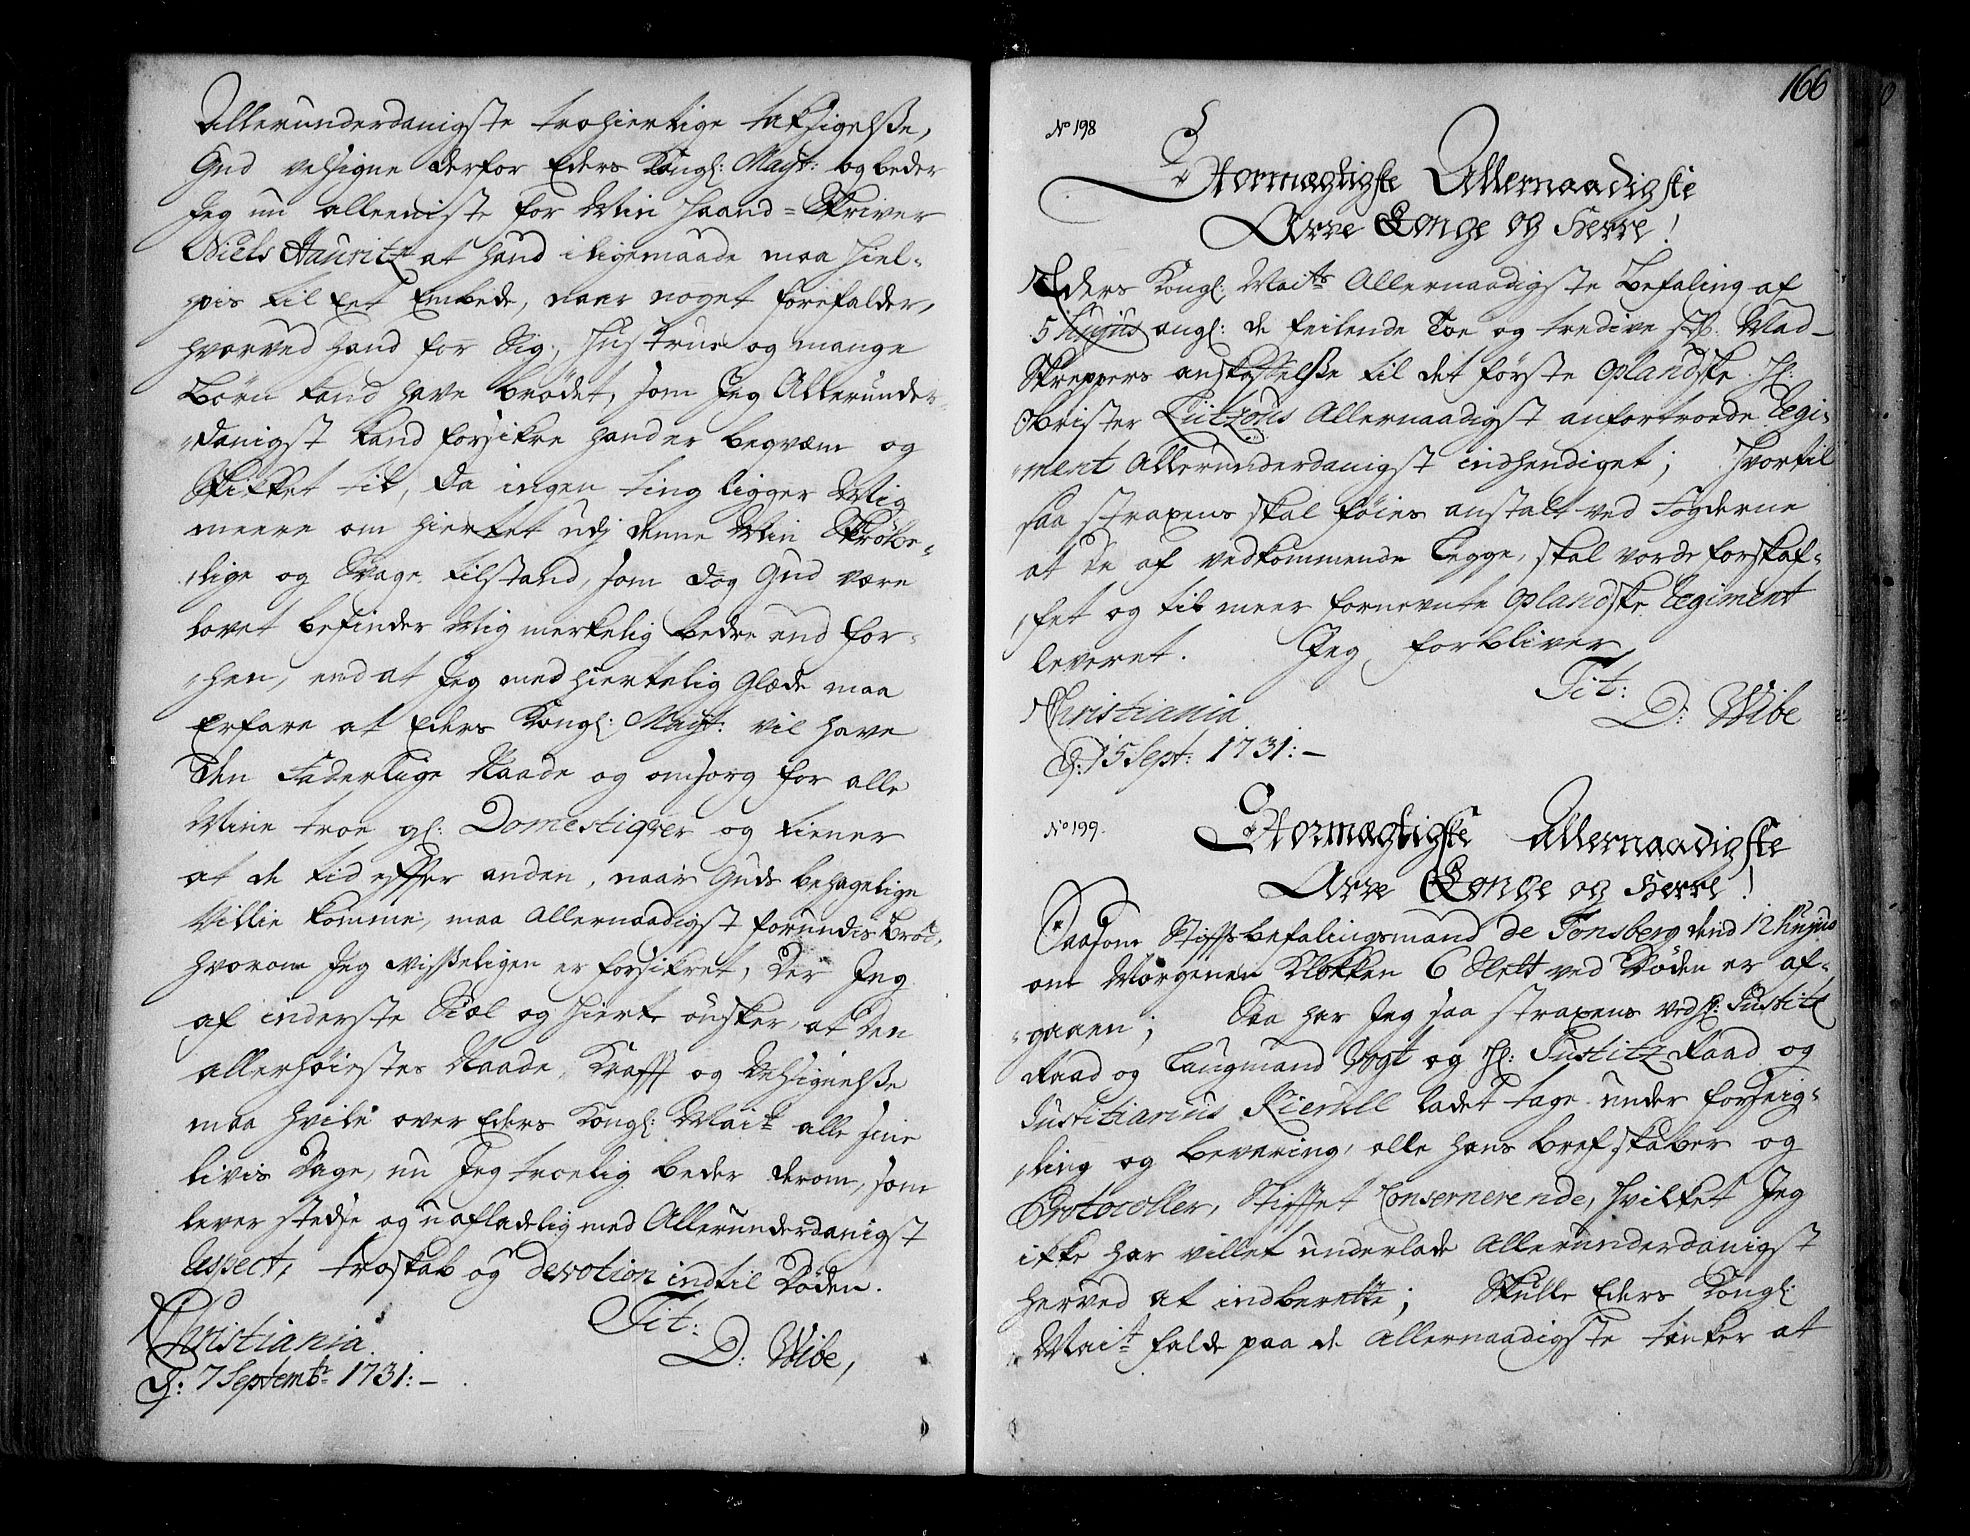 Allerunderdanigste trohiertige taksigelsse,
Gud velsigne derfor Eders Kongl: Mayt: og beder
Jeg nu alleeniste for Min Haand-Skriver
Niels Hauritz at hand i ligemaade maa hiel-
pis til Eet Embede, naar noget forefalder,
hvorved hand for Sig, Hustrue og mange
Børn kand have brødet, som Jeg Allerunder-
danigst kand forsikre hand er beqvæm og
Skikket til, da ingen ting ligger Mig
meere om hiertet udj denne Min Skrøbe-
lige og Svage tilstand, som dog Gud være
lovet befinder Mig merkelig bedre end for-
hen, end at Jeg med hiertelig Glæde maa
Erfare at Eders Kongl: Mayt: vil have
den Faderlige Naade og omsorg for alle
Mine troe gl: Domestiqver og tiener
at de tid effter anden, naar Guds behagelige
Villie kommer, maa Allernaadigst forundis Brød,
hvorom Jeg visseligen er forsikret, Der Jeg
af inderste Siæl og Hierte ønsker, at den
allerhøiestes Naade, Krafft og Velsignelsse
maa hvile over Eders Kongl: Mait: alle sine
livis Dage, nu Jeg troelig beder derom, som
lever stedse og uafladelig med Allerunderdanigst
Respect, troskab og devotion indtil Døden.
Christiania Tit:
d: 7 Septembr 1731:- D: Wibe,
166
No 198
Stormægtigste Allernaadigste
Arve Konge og Herre!
Eders Kongl: Maits Allernaadigste Befaling af
5 hujus angl: de feilende Toe og tredive sch: Mad-
Skreppers anskaffelsse til det første Oplandske Hr:
Obrister Lützous Allernaadigst anfortroede Regi-
ment Allerunderdanigst indhendiget; Hvortil
saa strax skal føies anstalt ved Fogderne
at de af vedkommende Legge, skal vorde forskaf-
fet og til meer fornevnte Oplandske Regiment
leveret. Jeg forbliver
Tit:
Christiania D: Wibe
d: 15 Sept: 1731:-
No 199.
Stormægtigste Allernaadigste
Arve Konge og Herre!
Saasom Stifftsbefalingsmand de Tonsberg dend 12 hujus
om Morgenen Klokken 6 Slett ved Døden er af-
gaaen; Saa har Jeg saa strax ved Hr: Justitz
Raad og Laugmand Vogt og Hr: Justitz Raad og
Justitiarius Kierulf ladet tage under forseig-
ling og bevaring, alle hans brefskaber og
Protocoller, Stifftet Consernerende, Hvilket Jeg
ikke har villet underlade Allerunderdanigst
herved at indberette; Skulle Eders Kongl:
Mait: falde paa de Allernaadigste tanker at